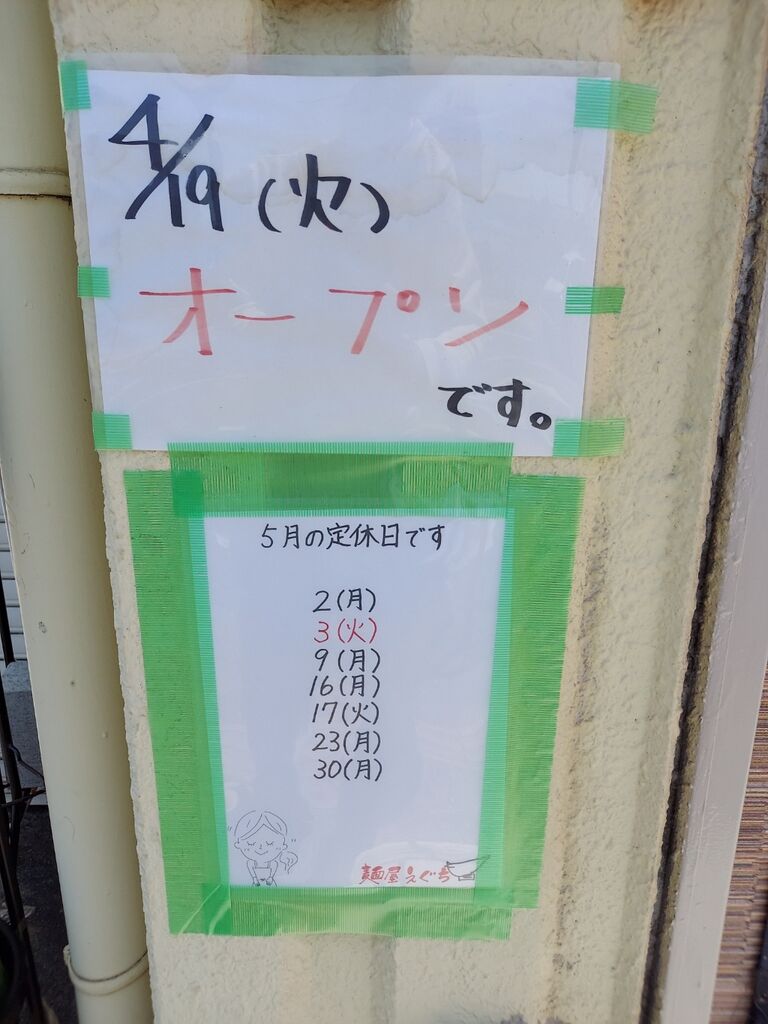 4/19(火)
オープン
です。
5月の定休日です
2(月)
3(火)
9(月)
16(月)
17(火)
23(月)
30(月)
麺屋えぐち